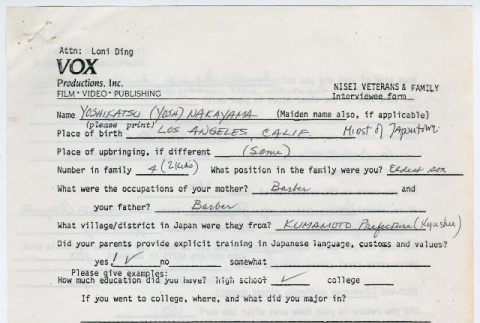 Attn: Loni Ding
VOX
Productions, Inc.
FILM • VIDEO • PUBLISHING
NISEI VETERANS & FAMILY
Interviewee form
Name YOSHIKATSU (YOSH) NAKAYAMA (Maiden name also, if applicable)
(please print)
Place of birth LOS ANGELES CALIF
Place of upbringing, if different (Same)
Number in family 4 (2 kids) What position in the family were you? Eldest son
What were the occupations of your mother? Barber and
your father? Barber
What village/district in Japan were they from? KUMAMOTO Prefecture (Kyushu)
Did your parents provide explicit training in Japanese language, customs and values?
yes ! √ no somewhat
Please give examples:
How much education did you have? high school √ college
If you went to college, where, and what did you major in?